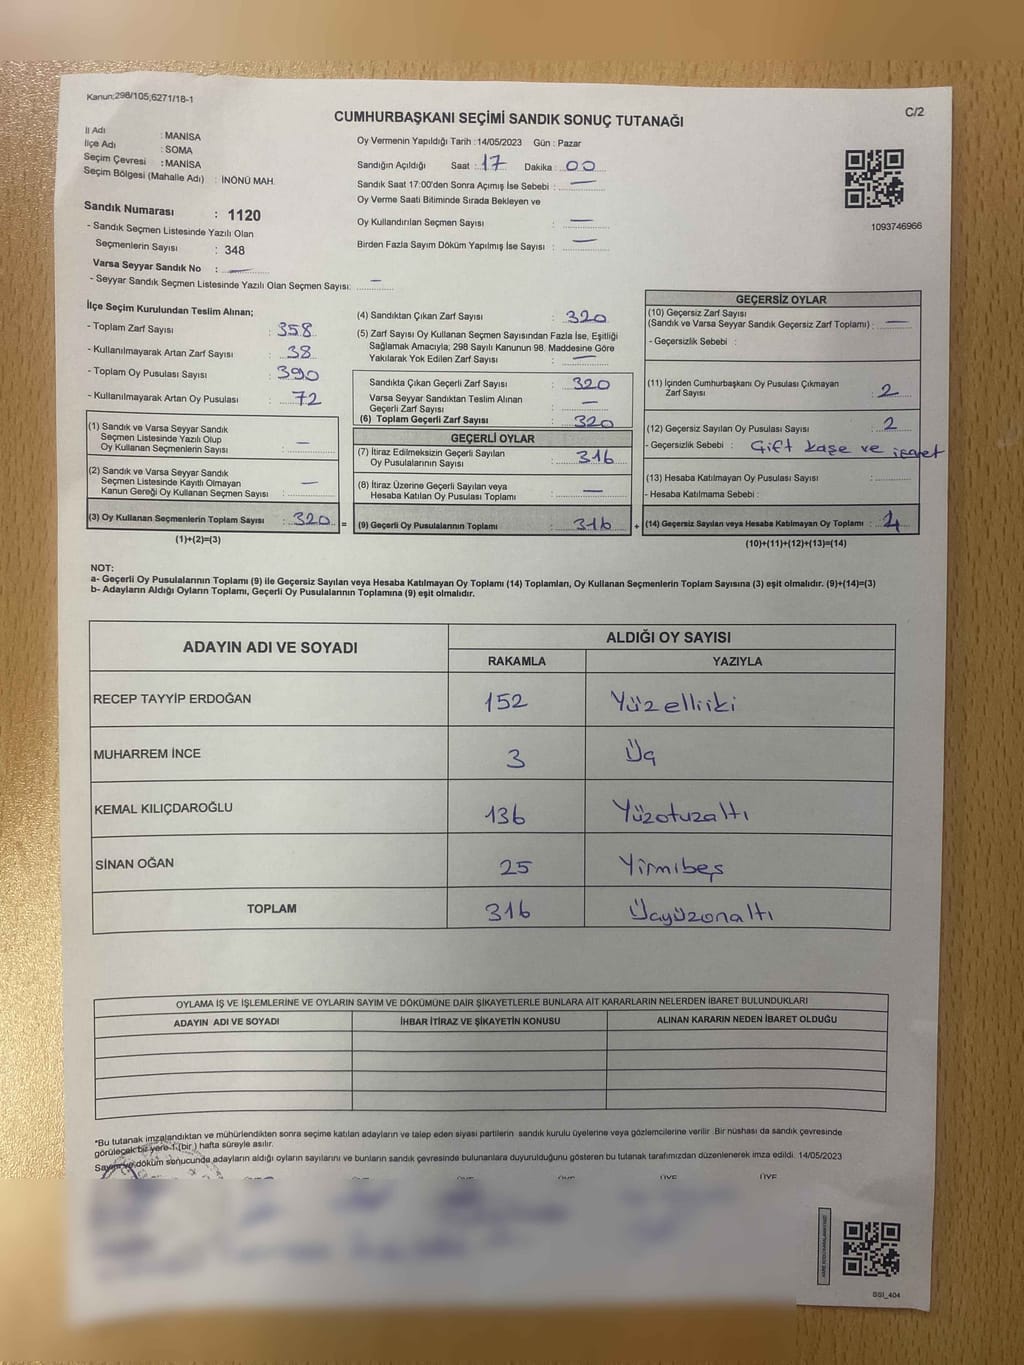 Kanun;298/105;6271/18-1
C/2
CUMHURBAŞKANI SEÇİMİ SANDIK SONUÇ TUTANAĞI
İl Adı : MANİSA
İlçe Adı : SOMA
Seçim Çevresi : MANİSA
Seçim Bölgesi (Mahalle Adı) : İNÖNÜ MAH.
Sandık Numarası : 1120
- Sandık Seçmen Listesinde Yazılı Olan
Seçmenlerin Sayısı : 348
Varsa Seyyar Sandık No : —
- Seyyar Sandık Seçmen Listesinde Yazılı Olan Seçmen Sayısı: —
Oy Vermenin Yapıldığı Tarih : 14/05/2023 Gün : Pazar
Sandığın Açıldığı Saat : 17 Dakika : 00
Sandık Saat 17:00'den Sonra Açımış İse Sebebi : —
Oy Verme Saati Bitiminde Sırada Bekleyen ve
Oy Kullandırılan Seçmen Sayısı : —
Birden Fazla Sayım Döküm Yapılmış İse Sayısı : —
1093746966
İlçe Seçim Kurulundan Teslim Alınan;
- Toplam Zarf Sayısı : 358
- Kullanılmayarak Artan Zarf Sayısı : 38
- Toplam Oy Pusulası Sayısı : 390
- Kullanılmayarak Artan Oy Pusulası : 72
(1) Sandık ve Varsa Seyyar Sandık
Seçmen Listesinde Yazılı Olup
Oy Kullanan Seçmenlerin Sayısı : —
(2) Sandık ve Varsa Seyyar Sandık
Seçmen Listesinde Kayıtlı Olmayan
Kanun Gereği Oy Kullanan Seçmen Sayısı : —
(3) Oy Kullanan Seçmenlerin Toplam Sayısı : 320 =
(1)+(2)=(3)
(4) Sandıktan Çıkan Zarf Sayısı : 320
(5) Zarf Sayısı Oy Kullanan Seçmen Sayısından Fazla İse, Eşitliği
Sağlamak Amacıyla; 298 Sayılı Kanunun 98. Maddesine Göre
Yakılarak Yok Edilen Zarf Sayısı : —
Sandıkta Çıkan Geçerli Zarf Sayısı : 320
Varsa Seyyar Sandıktan Teslim Alınan
Geçerli Zarf Sayısı : —
(6) Toplam Geçerli Zarf Sayısı : 320
GEÇERLİ OYLAR
(7) İtiraz Edilmeksizin Geçerli Sayılan
Oy Pusulalarının Sayısı : 316
(8) İtiraz Üzerine Geçerli Sayılan veya
Hesaba Katılan Oy Pusulası Toplamı : —
(9) Geçerli Oy Pusulalarının Toplamı : 316 +
GEÇERSİZ OYLAR
(10) Geçersiz Zarf Sayısı
(Sandık ve Varsa Seyyar Sandık Geçersiz Zarf Toplamı) : —
- Geçersizlik Sebebi :
(11) İçinden Cumhurbaşkanı Oy Pusulası Çıkmayan
Zarf Sayısı : 2
(12) Geçersiz Sayılan Oy Pusulası Sayısı : 2
- Geçersizlik Sebebi : Çift kaşe ve işaret
(13) Hesaba Katılmayan Oy Pusulası Sayısı :
- Hesaba Katılmama Sebebi :
(14) Geçersiz Sayılan veya Hesaba Katılmayan Oy Toplamı : 4
(10)+(11)+(12)+(13)=(14)
NOT:
a- Geçerli Oy Pusulalarının Toplamı (9) ile Geçersiz Sayılan veya Hesaba Katılmayan Oy Toplamı (14) Toplamları, Oy Kullanan Seçmenlerin Toplam Sayısına (3) eşit olmalıdır. (9)+(14)=(3)
b- Adayların Aldığı Oyların Toplamı, Geçerli Oy Pusulalarının Toplamına (9) eşit olmalıdır.
ADAYIN ADI VE SOYADI
ALDIĞI OY SAYISI
RAKAMLA YAZIYLA
RECEP TAYYİP ERDOĞAN 152 Yüzelliiki
MUHARREM İNCE 3 Üç
KEMAL KILIÇDAROĞLU 136 Yüzotuzaltı
SİNAN OĞAN 25 Yirmibeş
TOPLAM 316 Üçyüzonaltı
OYLAMA İŞ VE İŞLEMLERİNE VE OYLARIN SAYIM VE DÖKÜMÜNE DAİR ŞİKAYETLERLE BUNLARA AİT KARARLARIN NELERDEN İBARET BULUNDUKLARI
ADAYIN ADI VE SOYADI İHBAR İTİRAZ VE ŞİKAYETİN KONUSU ALINAN KARARIN NEDEN İBARET OLDUĞU
*Bu tutanak imzalandıktan ve mühürlendikten sonra seçime katılan adayların ve talep eden siyasi partilerin sandık kurulu üyelerine veya gözlemcilerine verilir. Bir nüshası da sandık çevresinde
görülecek bir yere 1 (bir ) hafta süreyle asılır.
Sayım ve döküm sonucunda adayların aldığı oyların sayılarını ve bunların sandık çevresinde bulunanlara duyurulduğunu gösteren bu tutanak tarafımızdan düzenlenerek imza edildi. 14/05/2023
ÜYE ÜYE ÜYE ÜYE
SSI_404